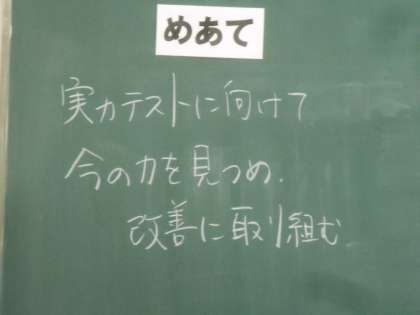 めあて
実力テストに向けて
今の力を見つめ.
改善に取り組む